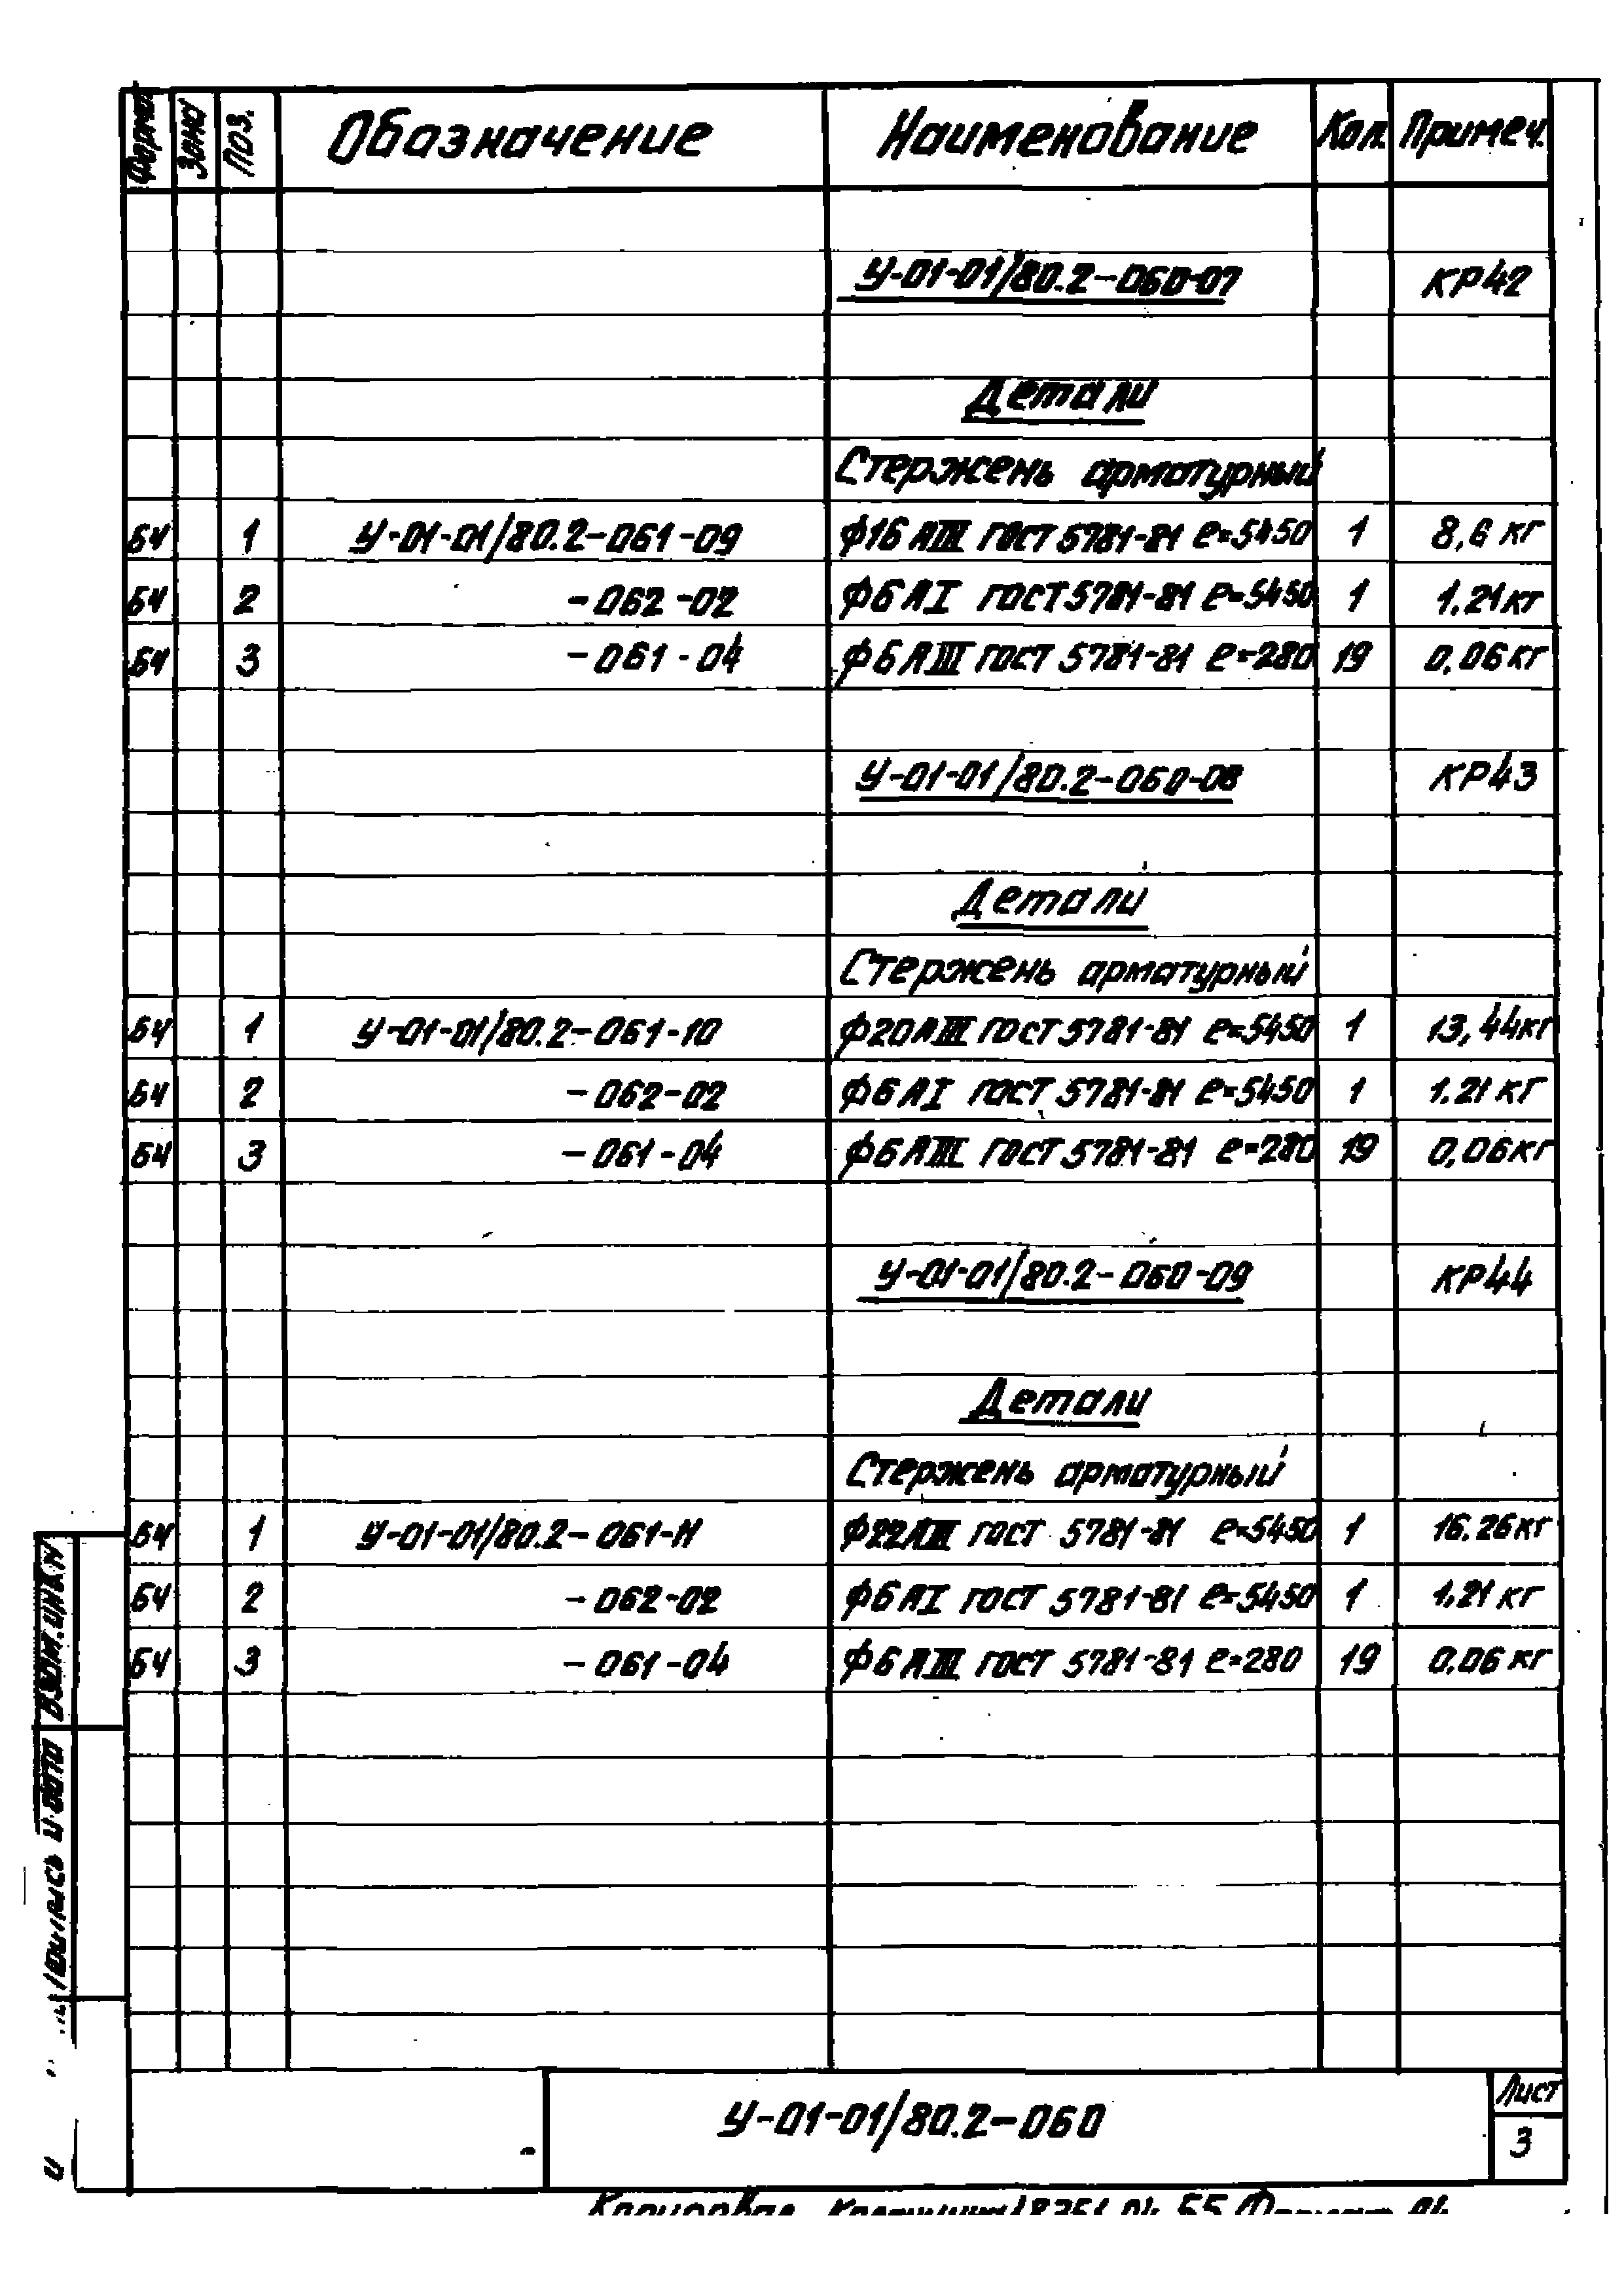 Формат Зона Поз. Обозначение Наименование Кол. Примеч.
У-01-01/80.2-060-07 КР42
Детали
Стержень арматурный
БЧ 1 У-01-01/80.2-061-09 Ф16 АIII ГОСТ 5781-81 ℓ=5450 1 8,6 кг
БЧ 2 -062-02 Ф6 АI ГОСТ 5781-81 ℓ=5450 1 1.21 кг
БЧ 3 -061-04 Ф6 АIII ГОСТ 5781-81 ℓ=280 19 0,06 кг
У-01-01/80.2-060-08 КР43
Детали
Стержень арматурный
БЧ 1 У-01-01/80.2-061-10 Ф20 АIII ГОСТ 5781-81 ℓ=5450 1 13,44кг
БЧ 2 -062-02 Ф6 АI ГОСТ 5781-81 ℓ=5450 1 1.21 кг
БЧ 3 -061-04 Ф6 АIII ГОСТ 5781-81 ℓ=280 19 0,06кг
У-01-01/80.2-060-09 КР44
Детали
Стержень арматурный
БЧ 1 У-01-01/80.2-061-11 Ф22 АIII ГОСТ 5781-81 ℓ=5450 1 16.26 кг
БЧ 2 -062-02 Ф6 АI ГОСТ 5781-81 ℓ=5450 1 1.21 кг
БЧ 3 -061-04 Ф6 АIII ГОСТ 5781-81 ℓ=280 19 0.06 кг
Взам.инв.N
Подпись и дата
У-01-01/80.2-060
Лист
3
Копировал 55 Формат